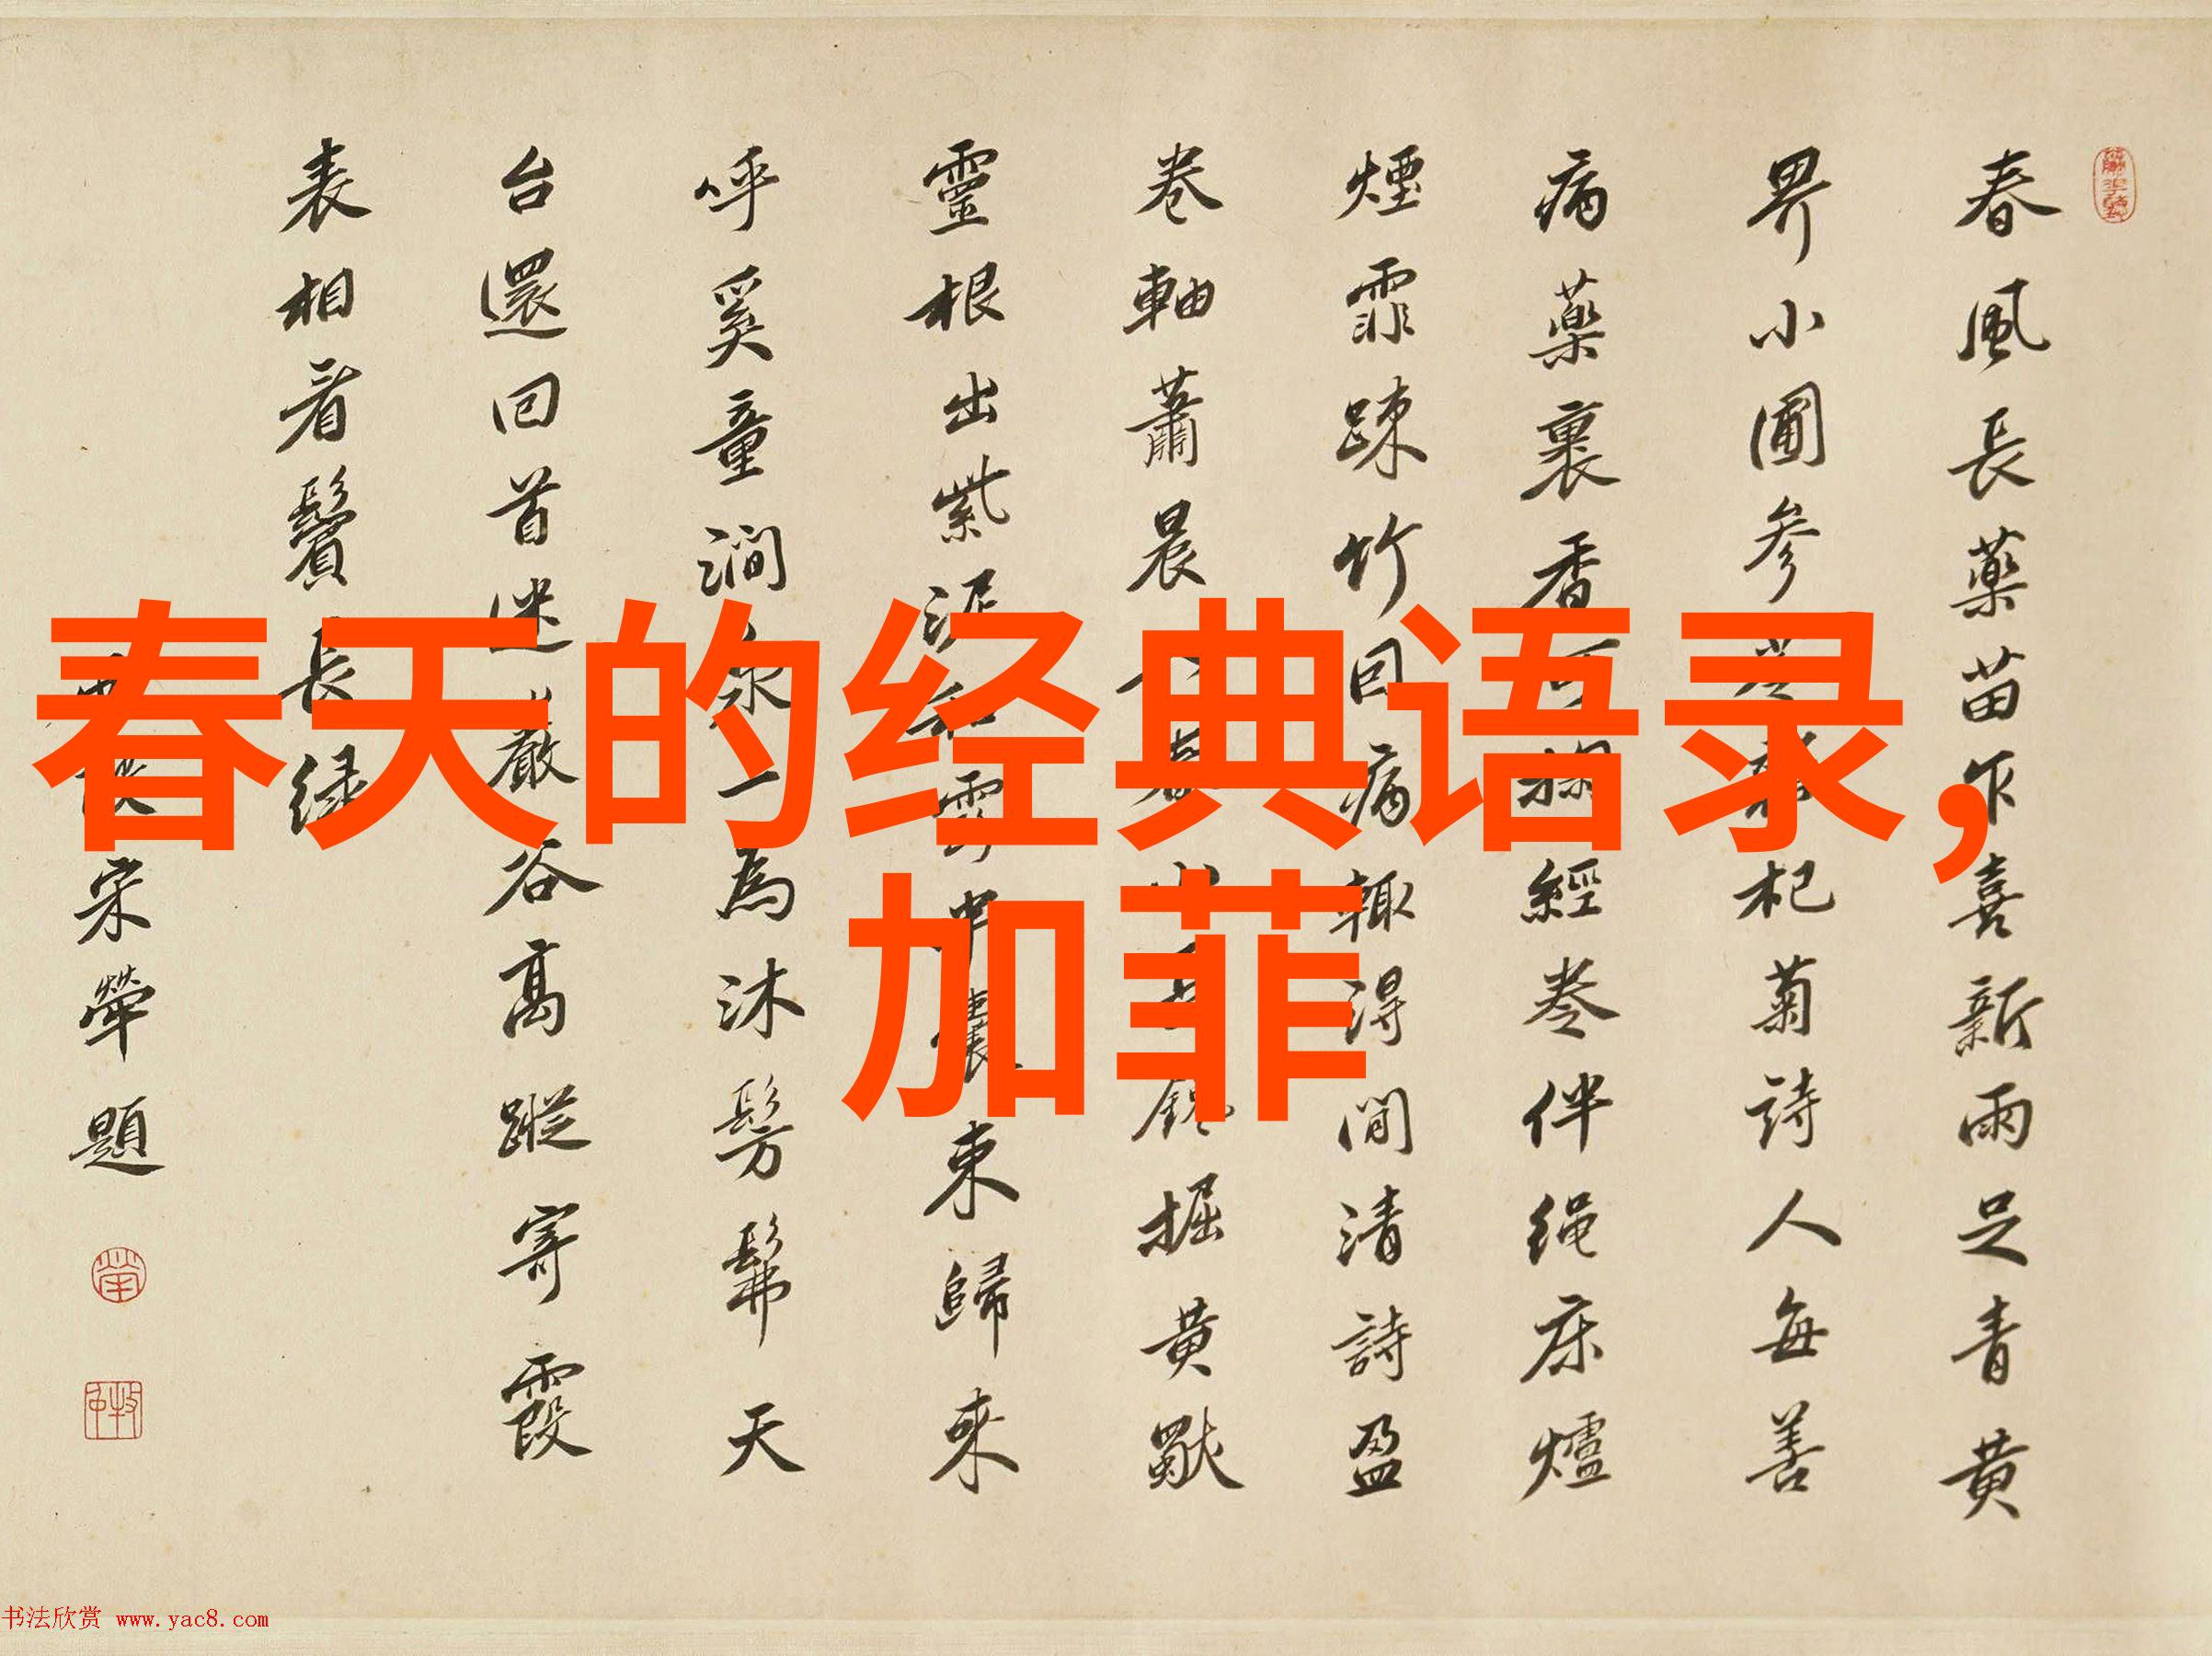 春天的经典语录,
加菲
春風長藥苗乍喜新雨足青黄
界小圃参杞菊詩人每善
病藥裹香經卷伴绳床爐
煙霏疎竹回病輙得閒清詩盈
卷軸蕭晨掘黄獨
靈根出紫泥東歸來
呼奚童澗水一為沐髣髴天
台還回首迷巖谷高蹤寄霞
表相看鬢長绿
宋犖題
书法欣赏 www.yac8.com